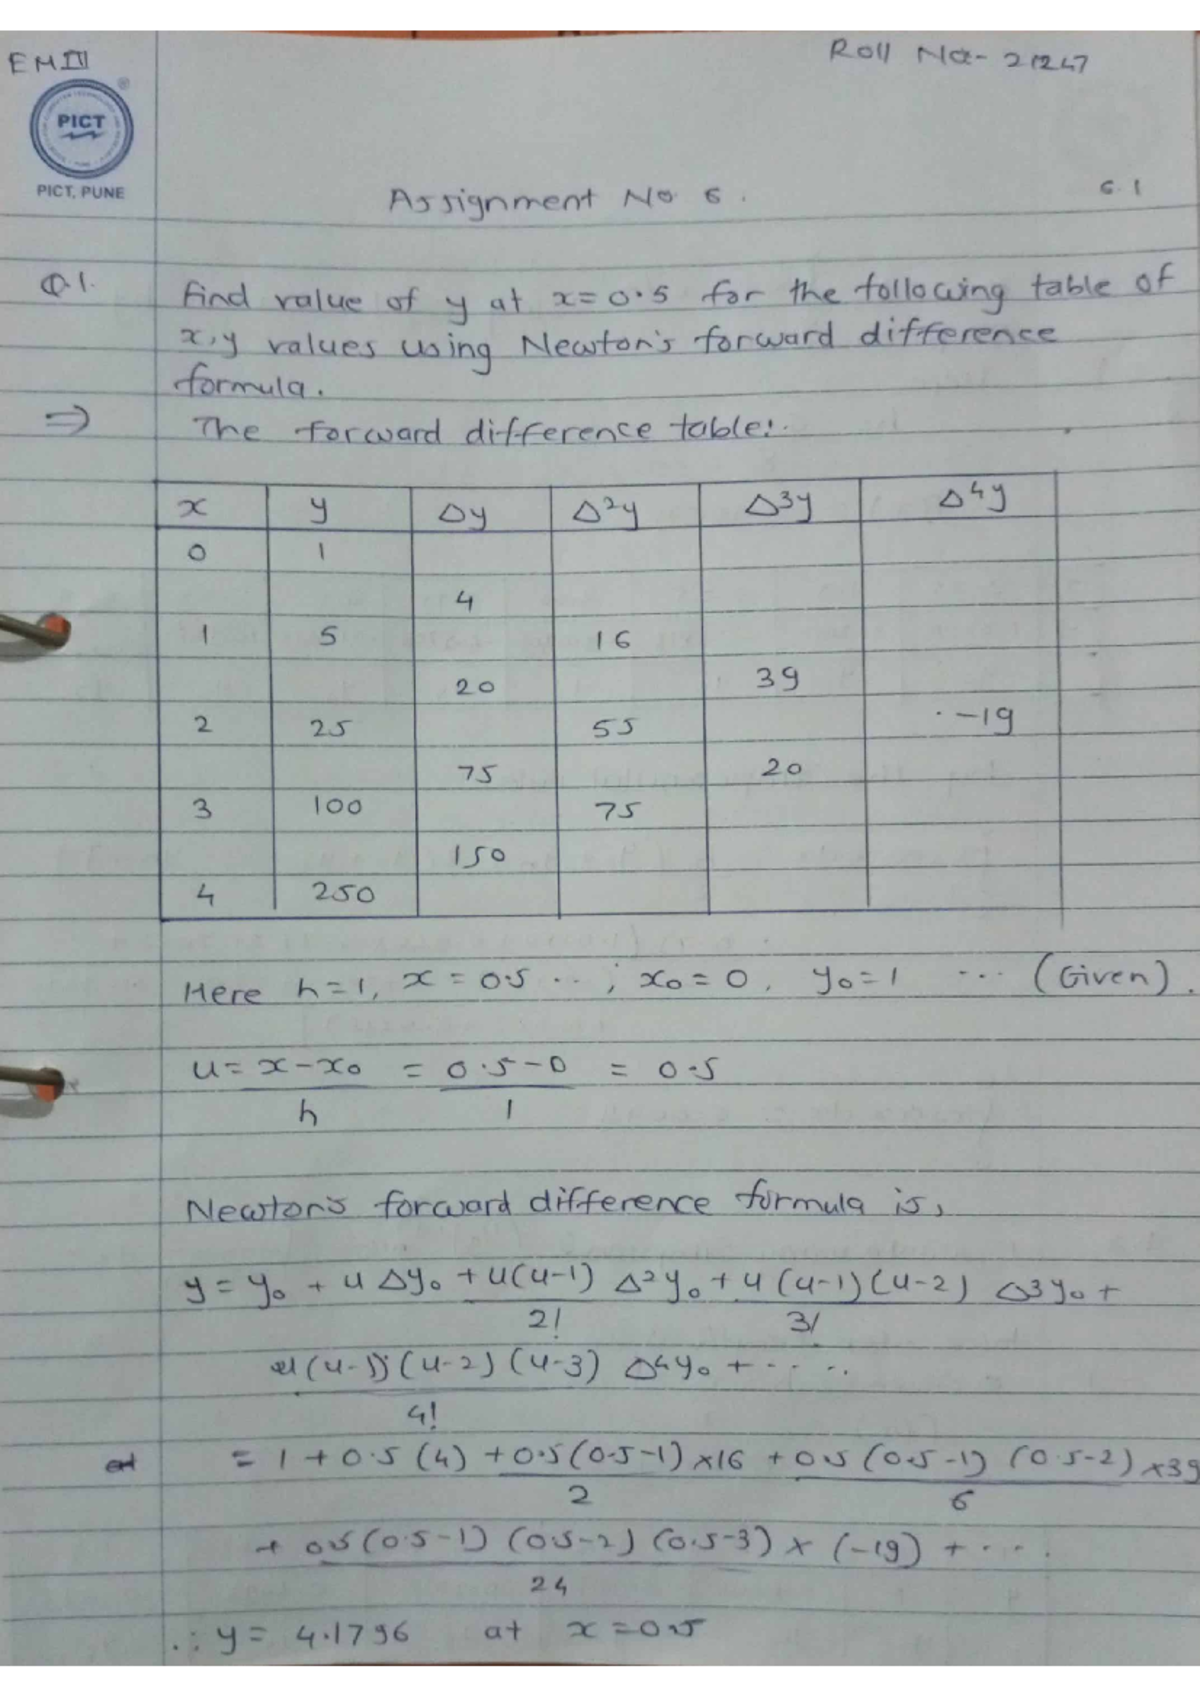 EM III
Roll No:- 21247
PICT
PICT, PUNE
Assignment No 6.
6.1
Q.1. Find value of y at x=0.5 for the following table of
x,y values using Newton's forward difference
formula.
⇒ The forward difference table:.
x y Δy Δ²y Δ³y Δ⁴y
0 1
4
1 5 16
20 39
2 25 55 -19
75 20
3 100 75
150
4 250
Here h=1, x=0.5 .. ; x₀=0, y₀=1 ... (Given).
u = x-x₀ = 0.5-0 = 0.5
h 1
Newton's forward difference formula is,
y = y₀ + u Δy₀ + u(u-1) Δ²y₀ + u(u-1)(u-2) Δ³y₀ +
2! 3!
u(u-1)(u-2)(u-3) Δ⁴y₀ + .....
4!
= 1 + 0.5(4) + 0.5(0.5-1)×16 + 0.5(0.5-1)(0.5-2)×39
2 6
+ 0.5(0.5-1)(0.5-2)(0.5-3)×(-19) + ....
24
∴ y = 4.1796 at x=0.5